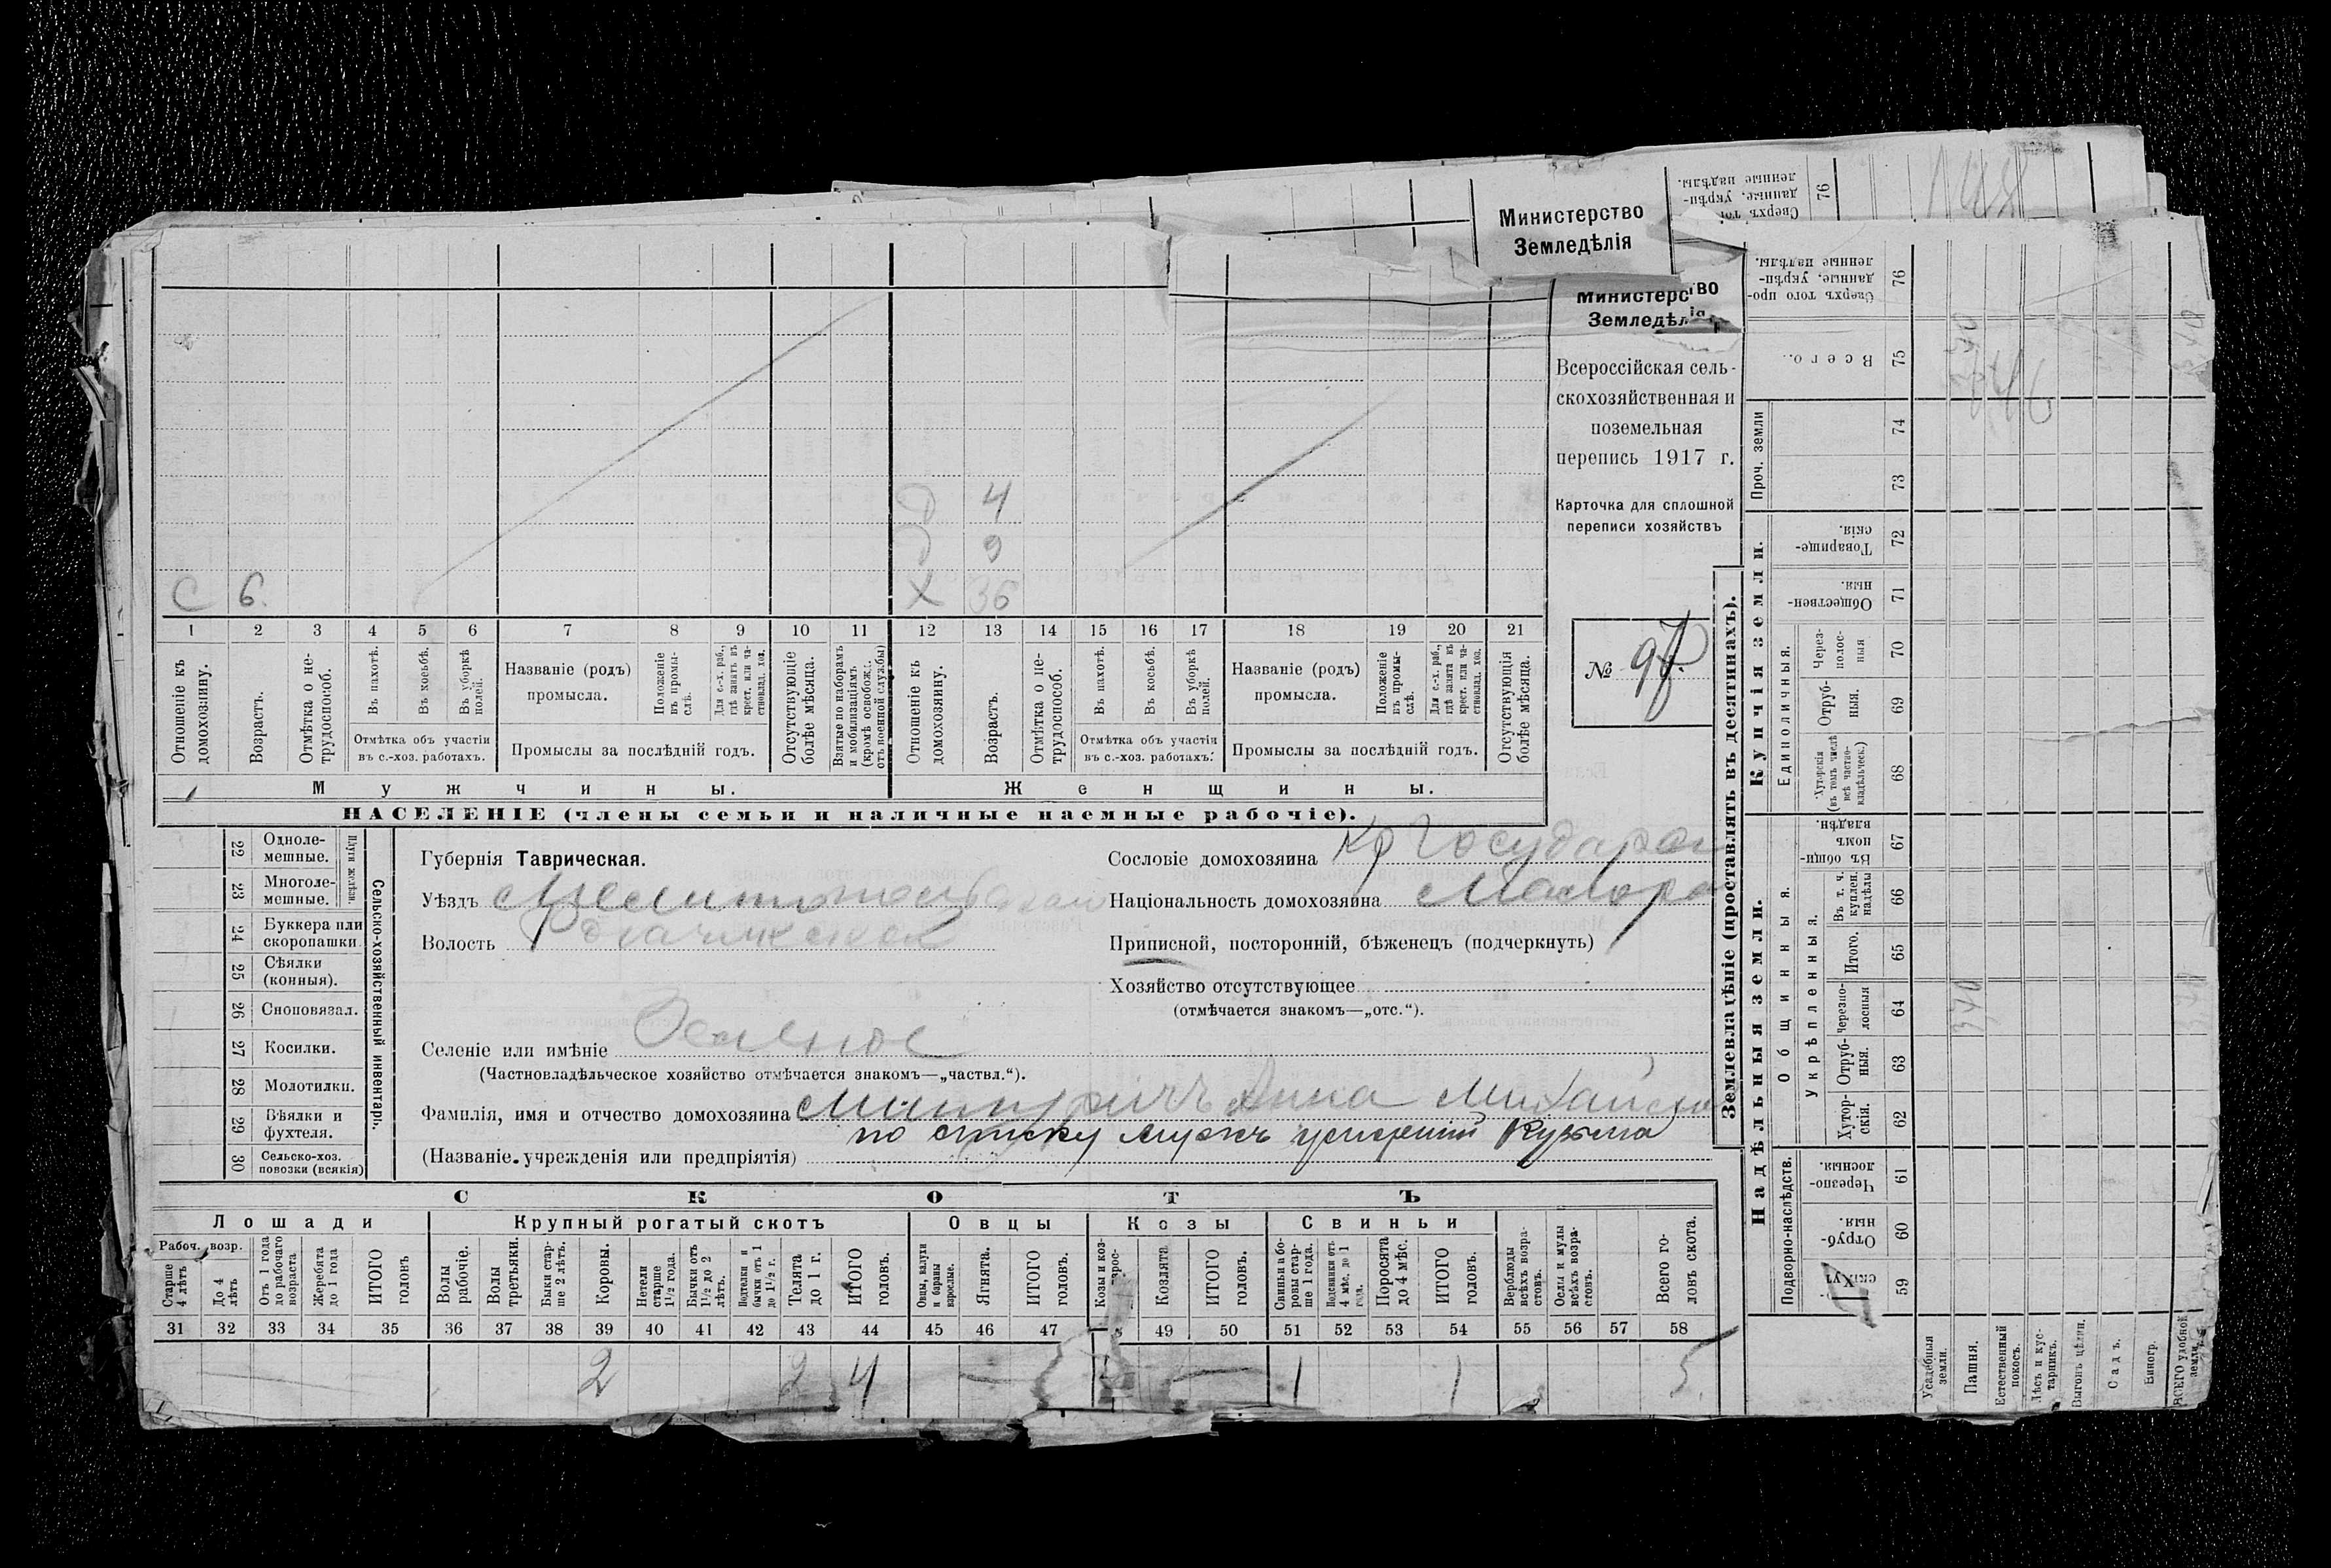 Министерство
Земледѣлія
Министерс во
Земледѣл
Всероссійская сель-
скохозяйственная и
поземельная
перепись 1917 г.
Карточка для сплошной
переписи хозяйствъ
№ 97.
Д 4
Д 9
С 6. Х 36
1 2 3 4 5 6 7 8 9 10 11 12 13 14 15 16 17 18 19 20 21
Отношеніе къ домохозяину.
Возрастъ.
Отмѣтка о не-трудоспособ.
Въ пахотѣ.
Въ косьбѣ.
Въ уборкѣ полей.
Отмѣтка объ участіи въ с.-хоз. работахъ.
Названіе (родъ) промысла.
Положеніе въ промы-слѣ.
Для с.-х. раб., гдѣ занятъ въ крест. или ча-стновлад. хоз.
Промыслы за послѣдній годъ.
Отсутствующіе болѣе мѣсяца.
Взятые по наборамъ и мобилизаціямъ (кромѣ освобож. отъ военной службы)
Отношеніе къ домохозяину.
Возрастъ.
Отмѣтка о не-трудоспособ.
Въ пахотѣ.
Въ косьбѣ.
Въ уборкѣ полей.
Отмѣтка объ участіи въ с.-хоз. работахъ.
Названіе (родъ) промысла.
Положеніе въ промы-слѣ.
Для с.-х. раб., гдѣ занята въ крест. или ча-стновлад. хоз.
Промыслы за послѣдній годъ.
Отсутствующія болѣе мѣсяца.
Мужчины. Женщины.
НАСЕЛЕНІЕ (члены семьи и наличные наемные рабочіе).
22 Одноле-мешные.
23 Многоле-мешные.
Плуги желѣзн.
24 Буккера или скоропашки
25 Сѣялки (конныя).
26 Сноповязал.
27 Косилки.
28 Молотилки.
29 Вѣялки и фухтеля.
30 Сельско-хоз. повозки (всякія)
Сельско-хозяйственный инвентарь.
Губернія Таврическая.
Уѣздъ
Волость
Селеніе или имѣніе Зеленое
(Частновладѣльческое хозяйство отмѣчается знакомъ—„частвл.“).
Фамилія, имя и отчество домохозяина Анна Михайло
по списку мужъ умерший Кузьма
(Названіе учрежденія или предпріятія)
Сословіе домохозяина Кр Государ
Національность домохозяина Малоро
Приписной, посторонній, бѣженецъ (подчеркнуть)
Хозяйство отсутствующее
(отмѣчается знакомъ—„отс.“).
СКОТЪ
Лошади Крупный рогатый скотъ Овцы Козы Свиньи
Рабоч. возр.
Старше 4 лѣтъ
До 4 лѣтъ
Отъ 1 года до рабочаго возраста
Жеребята до 1 года
ИТОГО головъ
Волы рабочіе.
Волы третьяки.
Быки стар-ше 2 лѣтъ.
Коровы.
Нетели старше 1½ года.
Бычки отъ 1½ до 2 лѣтъ.
Подтелки и бычки отъ 1 до 1½ г.
Телята до 1 г.
ИТОГО головъ.
Овцы, валухи и бараны взрослые.
Ягнята.
ИТОГО головъ.
Козы и коз-
Козлята
ИТОГО головъ.
Свиньи и бо-ровы стар-ше 1 года.
Подсвинки отъ 4 мѣс. до 1 года.
Поросята до 4 мѣс.
ИТОГО головъ.
Верблюды всѣхъ возра-стовъ.
Ослы и мулы всѣхъ возра-стовъ.
Всего го-ловъ скота.
31 32 33 34 35 36 37 38 39 40 41 42 43 44 45 46 47 49 50 51 52 53 54 55 56 57 58
2 2 4 1 1 5.
Землевладѣніе (проставлять въ десятинахъ).
Надѣльныя земли. Купчія земли.
Подворно-наслѣдств.
Общинныя.
Укрѣпленныя.
Единоличныя.
Проч. земли
59
Отруб-ныя. 60
Черезпо-лосныя. 61
Хутор-скія. 62
Отруб-ныя. 63
Черезпо-лосныя 64
Итого. 65
Въ т. ч. куплен. надѣлы 66
Въ общи-номъ владѣн. 67
Хуторскія (въ томъ числѣ всѣ частно-владѣльческ.) 68
Отруб-ныя. 69
Через-полос-ныя 70
Обществен-ныя. 71
Товарище-скія. 72
73
74
Всего. 75
Сверхъ того про-данные, укрѣп-ленные надѣлы. 76
Сверхъ то
данные, укрѣп-
ленные надѣлы.
76
Усадебныя земли.
Пашня.
Естественный покосъ.
Лѣсъ и кус-тарникъ.
Выгонъ цѣлин.
Садъ.
Виногр.
ВСЕГО удобной земли.